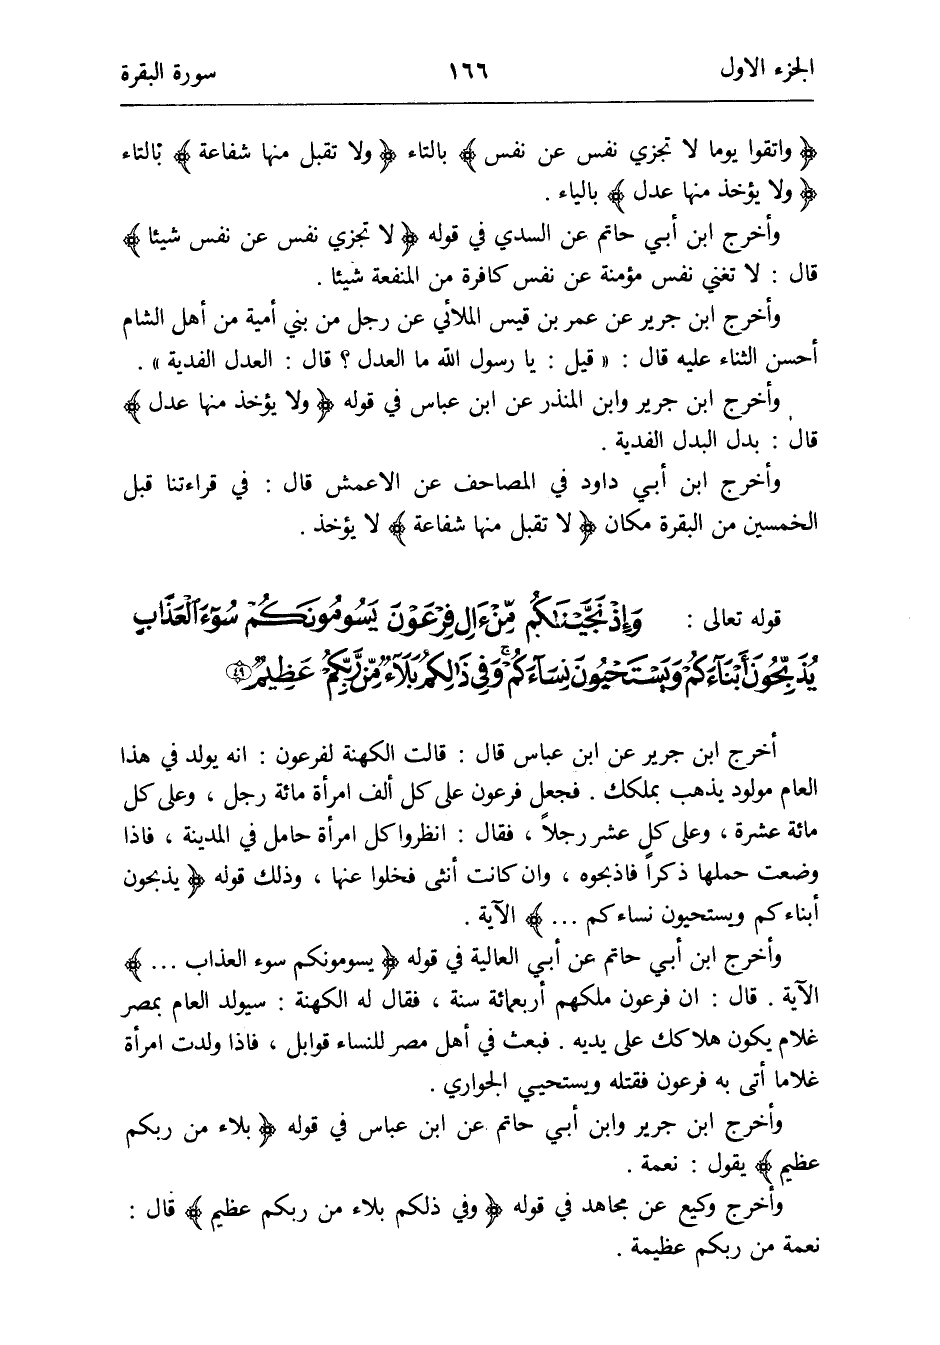 الجزء الاول ١٦٦ سورة البقرة
﴿ واتقوا يوما لا تجزي نفس عن نفس ﴾ بالتاء ﴿ ولا تقبل منها شفاعة ﴾ بالتاء
﴿ ولا يؤخذ منها عدل ﴾ بالياء .
وأخرج ابن أبي حاتم عن السدي في قوله ﴿ لا تجزي نفس عن نفس شيئا ﴾
قال : لا تغني نفس مؤمنة عن نفس كافرة من المنفعة شيئا .
وأخرج ابن جرير عن عمر بن قيس الملائي عن رجل من بني أمية من أهل الشام
أحسن الثناء عليه قال : « قيل : يا رسول الله ما العدل ؟ قال : العدل الفدية » .
وأخرج ابن جرير وابن المنذر عن ابن عباس في قوله ﴿ ولا يؤخذ منها عدل ﴾
قال : بدل البدل الفدية .
وأخرج ابن أبي داود في المصاحف عن الاعمش قال : في قراءتنا قبل
الخمسين من البقرة مكان ﴿ لا تقبل منها شفاعة ﴾ لا يؤخذ .
قوله تعالى : وَإِذْ نَجَّيْنَٰكُم مِّنْ ءَالِ فِرْعَوْنَ يَسُومُونَكُمْ سُوٓءَ ٱلْعَذَابِ
يُذَبِّحُونَ أَبْنَآءَكُمْ وَيَسْتَحْيُونَ نِسَآءَكُمْ ۚ وَفِى ذَٰلِكُم بَلَآءٌ مِّن رَّبِّكُمْ عَظِيمٌ ٤٩
أخرج ابن جرير عن ابن عباس قال : قالت الكهنة لفرعون : انه يولد في هذا
العام مولود يذهب بملكك . فجعل فرعون على كل ألف امرأة مائة رجل ، وعلى كل
مائة عشرة ، وعلى كل عشر رجلاً ، فقال : انظروا كل امرأة حامل في المدينة ، فاذا
وضعت حملها ذكراً فاذبحوه ، وان كانت أنثى فخلوا عنها ، وذلك قوله ﴿ يذبحون
أبناءكم ويستحيون نساءكم ... ﴾ الآية .
وأخرج ابن أبي حاتم عن أبي العالية في قوله ﴿ يسومونكم سوء العذاب ... ﴾
الآية . قال : ان فرعون ملكهم أربعمائة سنة ، فقال له الكهنة : سيولد العام بمصر
غلام يكون هلاكك على يديه . فبعث في أهل مصر للنساء قوابل ، فاذا ولدت امرأة
غلاما أتى به فرعون فقتله ويستحيي الجواري .
وأخرج ابن جرير وابن أبي حاتم عن ابن عباس في قوله ﴿ بلاء من ربكم
عظيم ﴾ يقول : نعمة .
وأخرج وكيع عن مجاهد في قوله ﴿ وفي ذلكم بلاء من ربكم عظيم ﴾ قال :
نعمة من ربكم عظيمة .